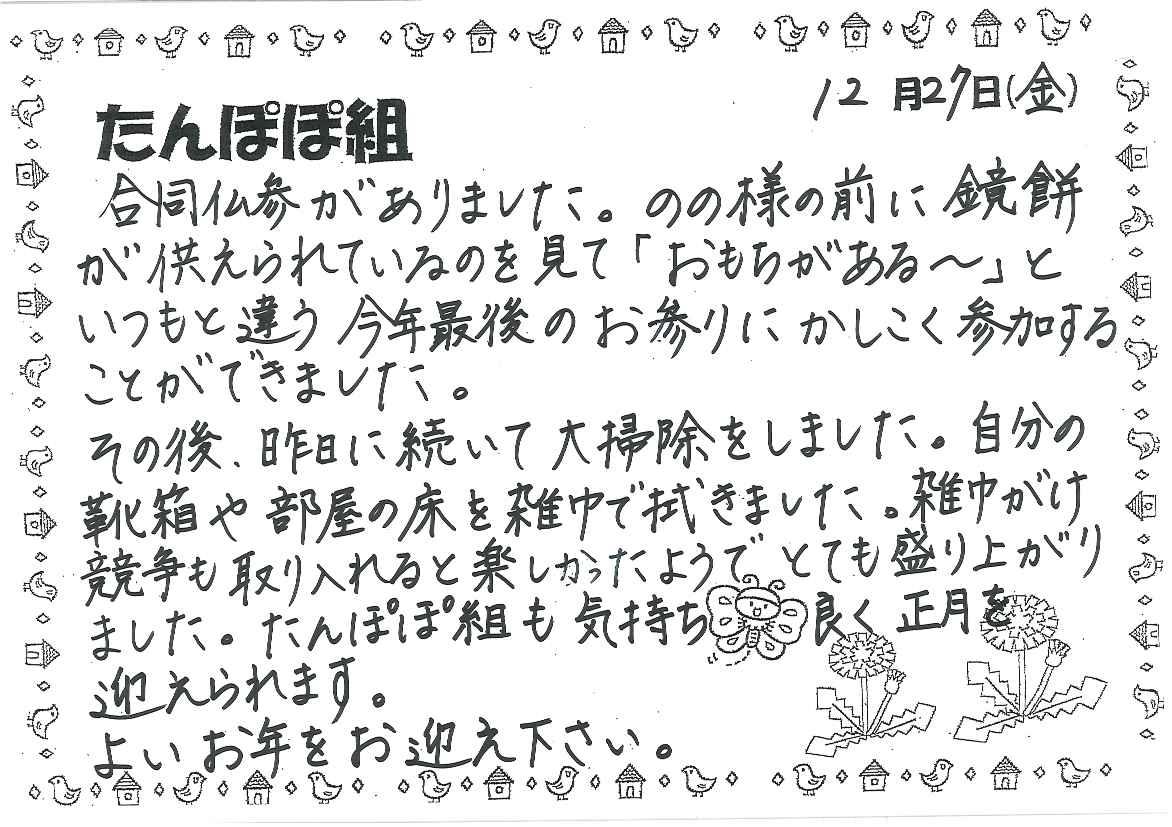 12月27日(金)
たんぽぽ組
合同仏参がありました。ののの様の前に鏡餅
が供えられているのを見て「おもちがある〜」と
いつもと違う今年最後のお参りにかしこく参加する
ことができました。
その後、昨日に続いて大掃除をしました。自分の
靴箱や部屋の床を雑巾で拭きました。雑巾がけ
競争も取り入れると楽しかったようでとても盛り上がり
ました。たんぽぽ組も気持ち良く正月を
迎えられます。
よいお年をお迎え下さい。